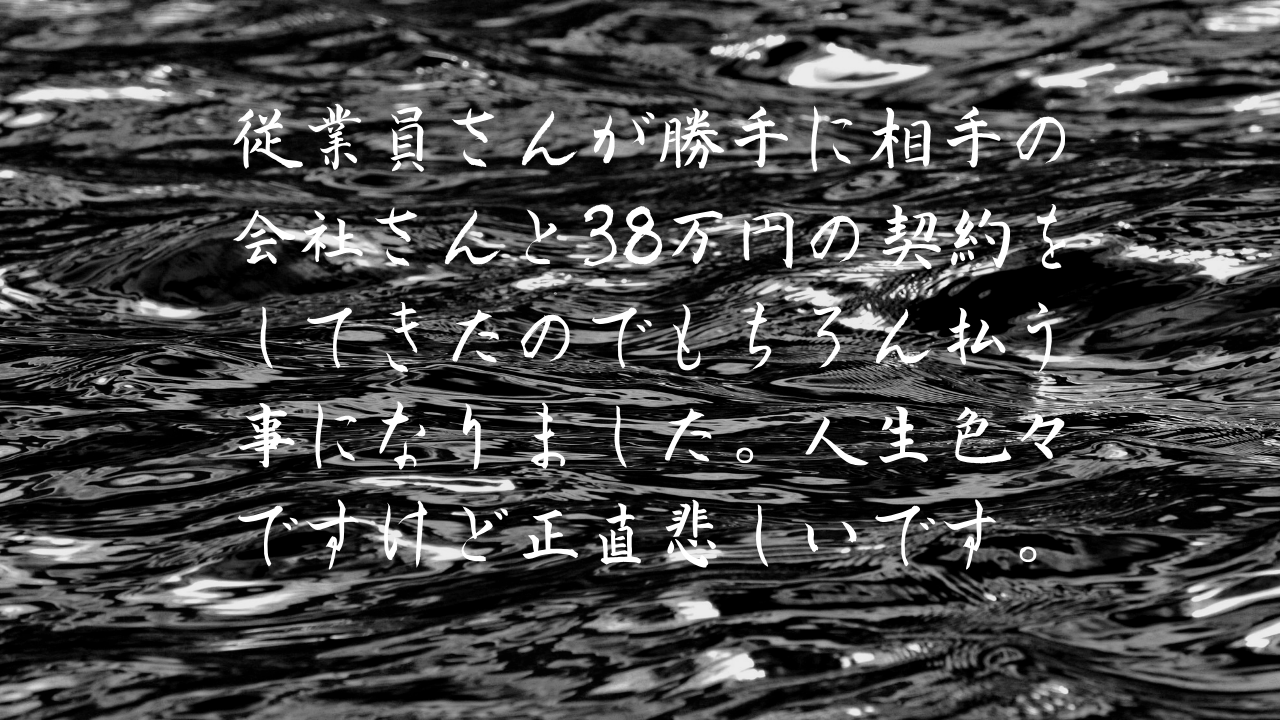 従業員さんが勝手に相手の
会社さんと38万円の契約を
してきたのでもちろん払う
事になりました。人生色々
ですけど正直悲しいです。